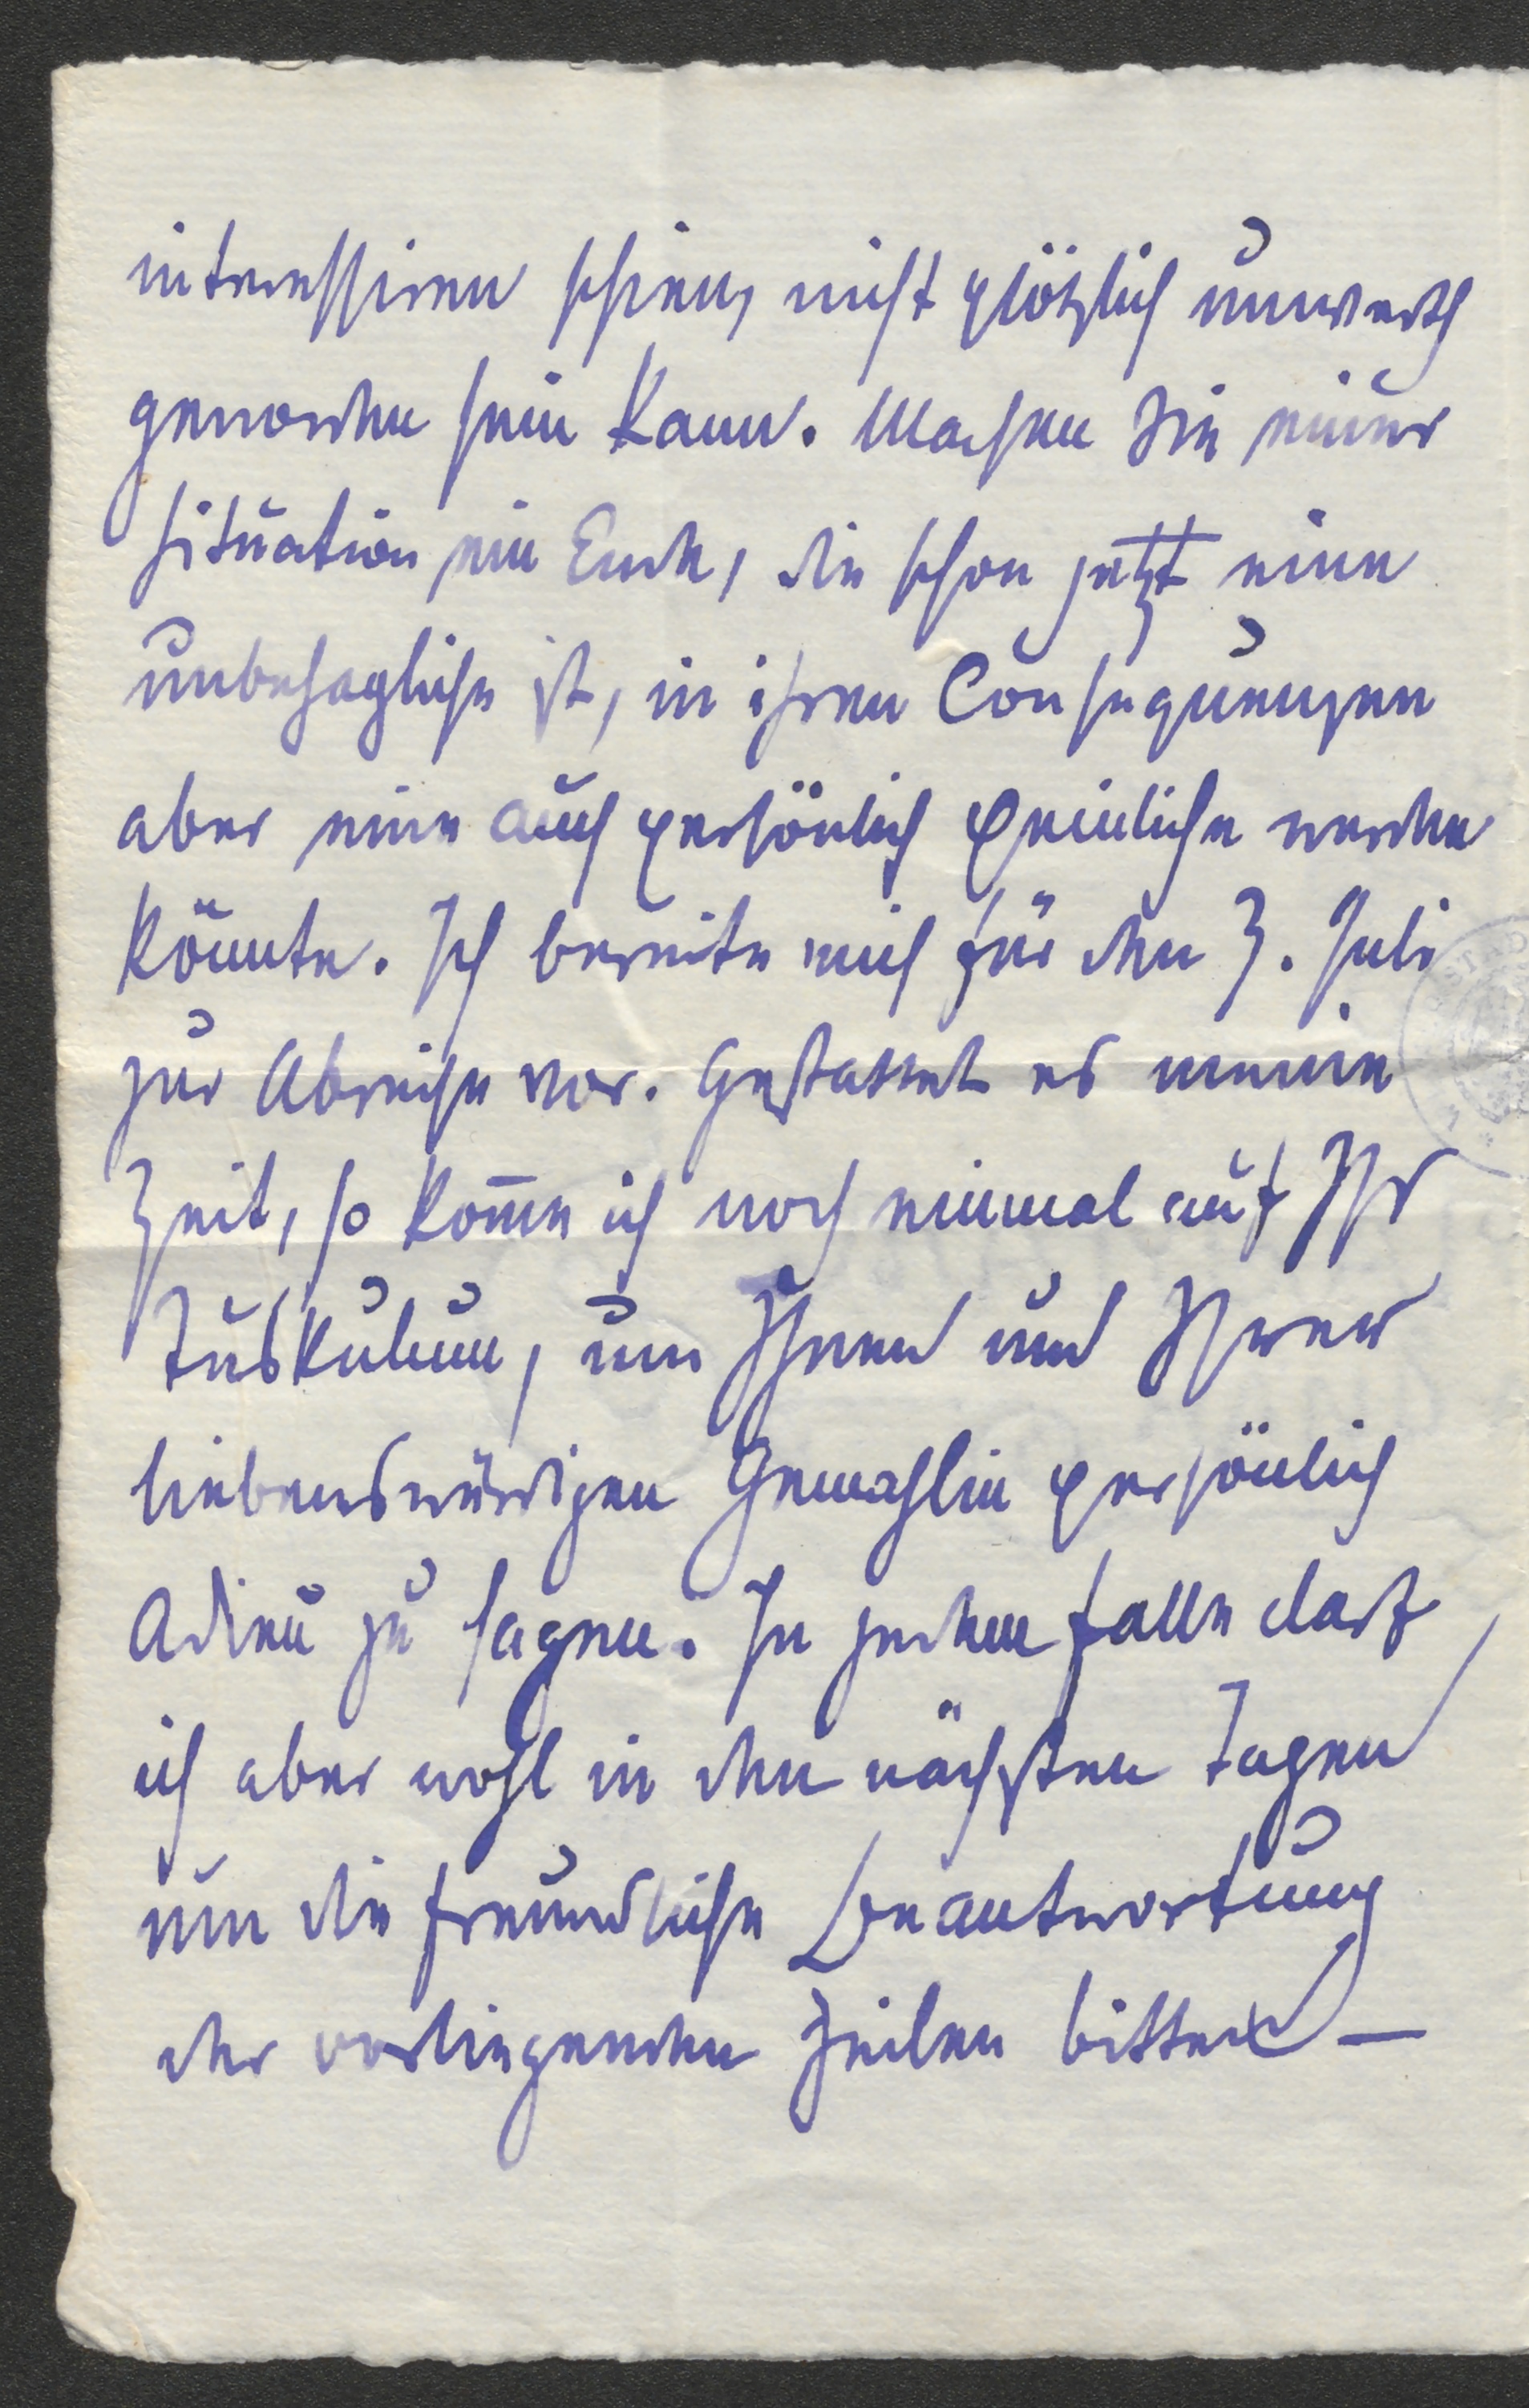 interessiren schien, nicht plötzlich unwerth
geworden sein kann. Machen Sie einer
Situation ein Ende, die schon jetzt eine
unbehagliche ist, in ihren Consequenzen
aber eine auch persönlich peinliche werden
könnte. Ich bereite mich für den 3. Juli
zur Abreise vor. Gestattet es meine
Zeit, so kom̅e ich noch einmal auf Ihr
Tuskulum, um Ihnen und Ihrer
liebenswürdigen Gemahlin persönlich
Adieu zu sagen. In jedem Falle darf
ich aber wohl in den nächsten Tagen
um die freundliche Beantwortung
der vorliegenden Zeilen bitten –